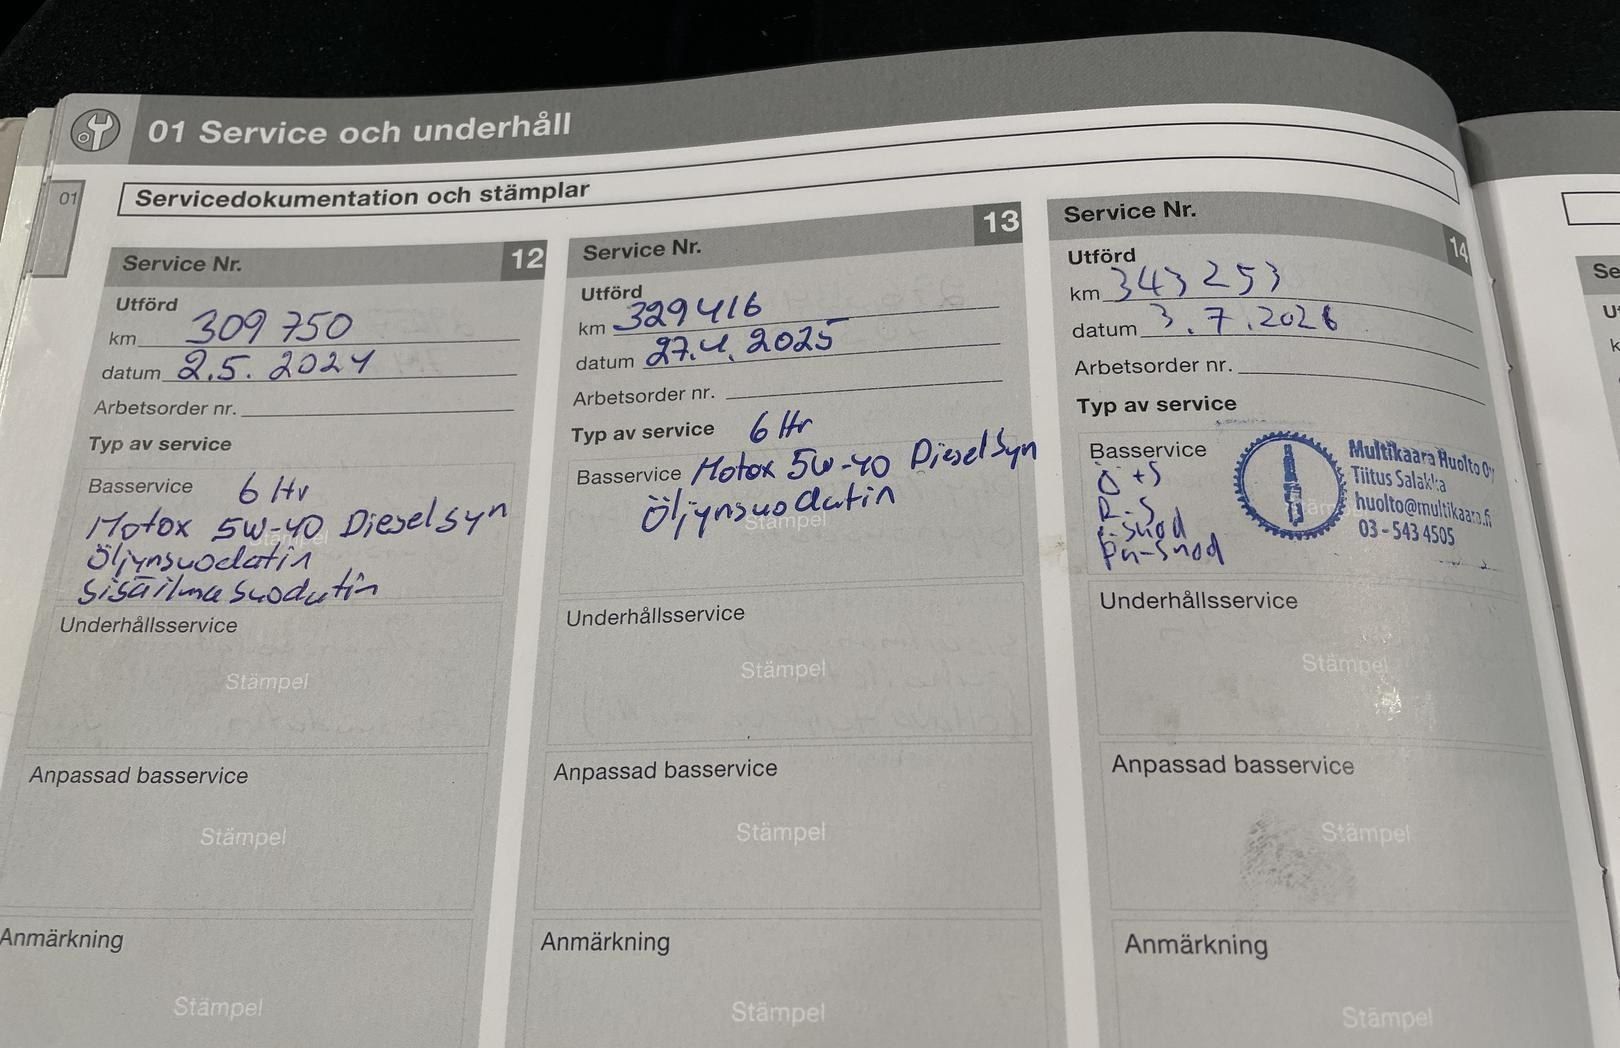 01 Service och underhåll
01
Servicedokumentation och stämplar
Service Nr. 12
Utförd
km 309 750
datum 2.5. 2024
Arbetsorder nr.
Typ av service
Basservice 6 ltr
Motox 5W-40 Diesel Syn
Stämpel
Öljynsuodatin
Sisäilma suodatin
Underhållsservice
Stämpel
Anpassad basservice
Stämpel
Anmärkning
Stämpel
Service Nr. 13
Utförd
km 329 416
datum 27.4. 2025
Arbetsorder nr.
Typ av service 6 ltr
Basservice Motox 5W-40 Diesel Syn
Öljynsuodatin
Stämpel
Underhållsservice
Stämpel
Anpassad basservice
Stämpel
Anmärkning
Stämpel
Service Nr. 14
Utförd
km 343 253
datum 3.7.2026
Arbetsorder nr.
Typ av service
Basservice
Ö+S
R-S
-suod
-suod
Multikaara Huolto Oy
Tiitus Salakka
huolto@multikaara.fi
03-543 4505
Underhållsservice
Stämpel
Anpassad basservice
Stämpel
Anmärkning
Stämpel
Se